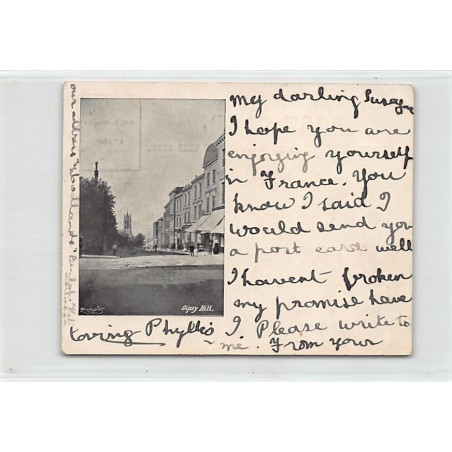 My darling Susay
I hope you are
enjoying yourself
in France. You
know I said I
would send you
a post card well
I havent broken
my promise have
I. Please write to
me. From your
loving Phyllis
Gipsy Hill.
our address "Woodlands"